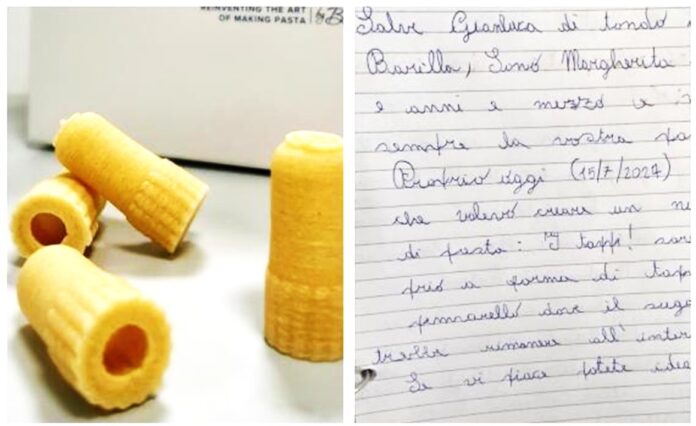 REINVENTING THE ART
OF MAKING PASTA
by
Salve Gianluca di tondo
Barilla, Sono Margherita
e anni e mezzo e
sempre la vostra pa
Proprio oggi (15/7/2024)
che volevo creare un
di pasta: "I tappi! sar
prio a forma di tap
pennarello dove il sug
trebbe rimanere all'inter
Se vi piace potete idea